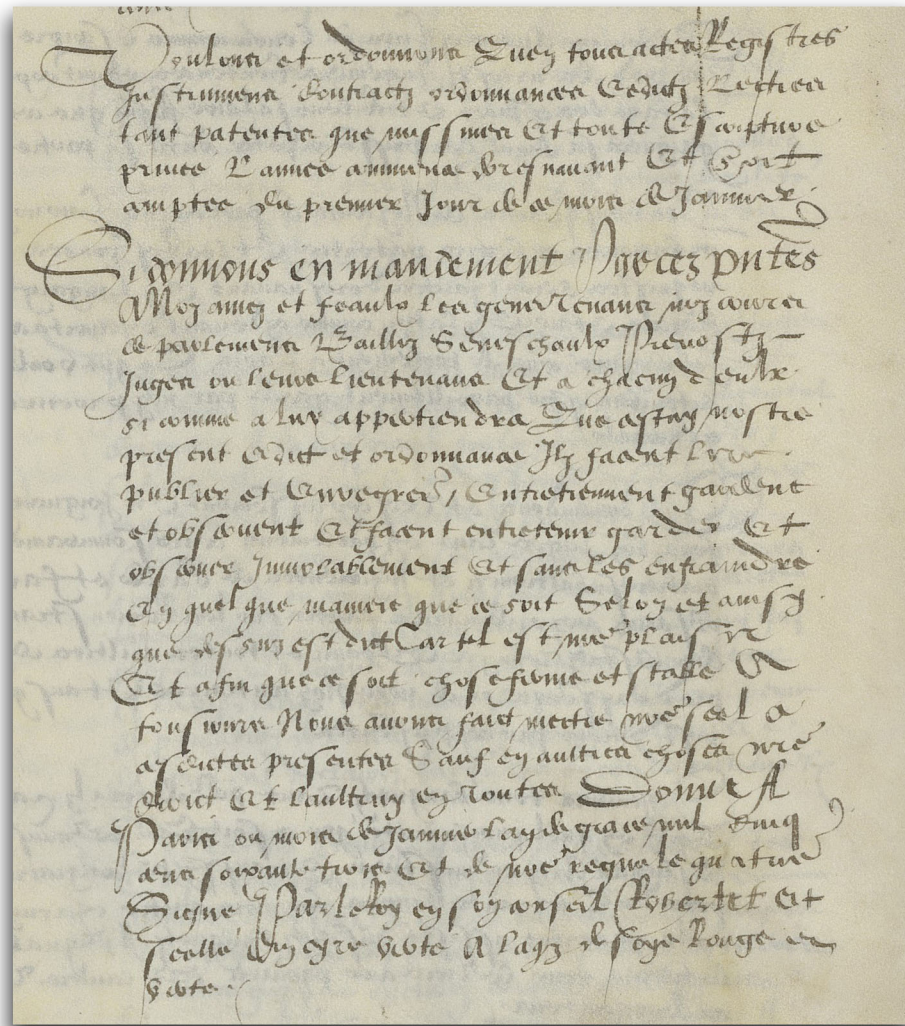 Voulons et ordonnons Quen tous actes Registres
Instrumens Contractz ordonnances Edictz Lectres
tant patentes que missives Et toute Escripture
privee Lannee commence doresnavant Et soit
comptee du premier Jour de ce mois de Janvier.
Si donnons en mandement Par ces pntes
A Noz amez et feaulx les gens tenans noz cours
de parlemens Baillyz Seneschaulx Prevostz
Juges ou leurs lieutenans Et a chacun deulx
si comme a luy appartiendra Que cestuy nostre
present edict et ordonnance Ilz facent lire
publier et Enregrer, Entretiennent gardent
et observent Et facent entretenir garder Et
observer Inviolablement Et sans les enfraindre
En quelque maniere que ce soit Selon et ainsy
que dessus est dict Car tel est nre plaisir
Et afin que ce soit chose ferme et stable A
tousjours Nous avons faict mectre nre seel a
cesdictes presentes Sauf en aultres choses nre
droict Et laultruy en toutes Donne A
Paris ou mois de Janvier lan de grace mil cinq
cens soixante trois Et de nre regne le quatriè
Signe Par le Roy en son conseil Robertet Et
scelle En cyre verte A laqz de soye Rouge et
verte.